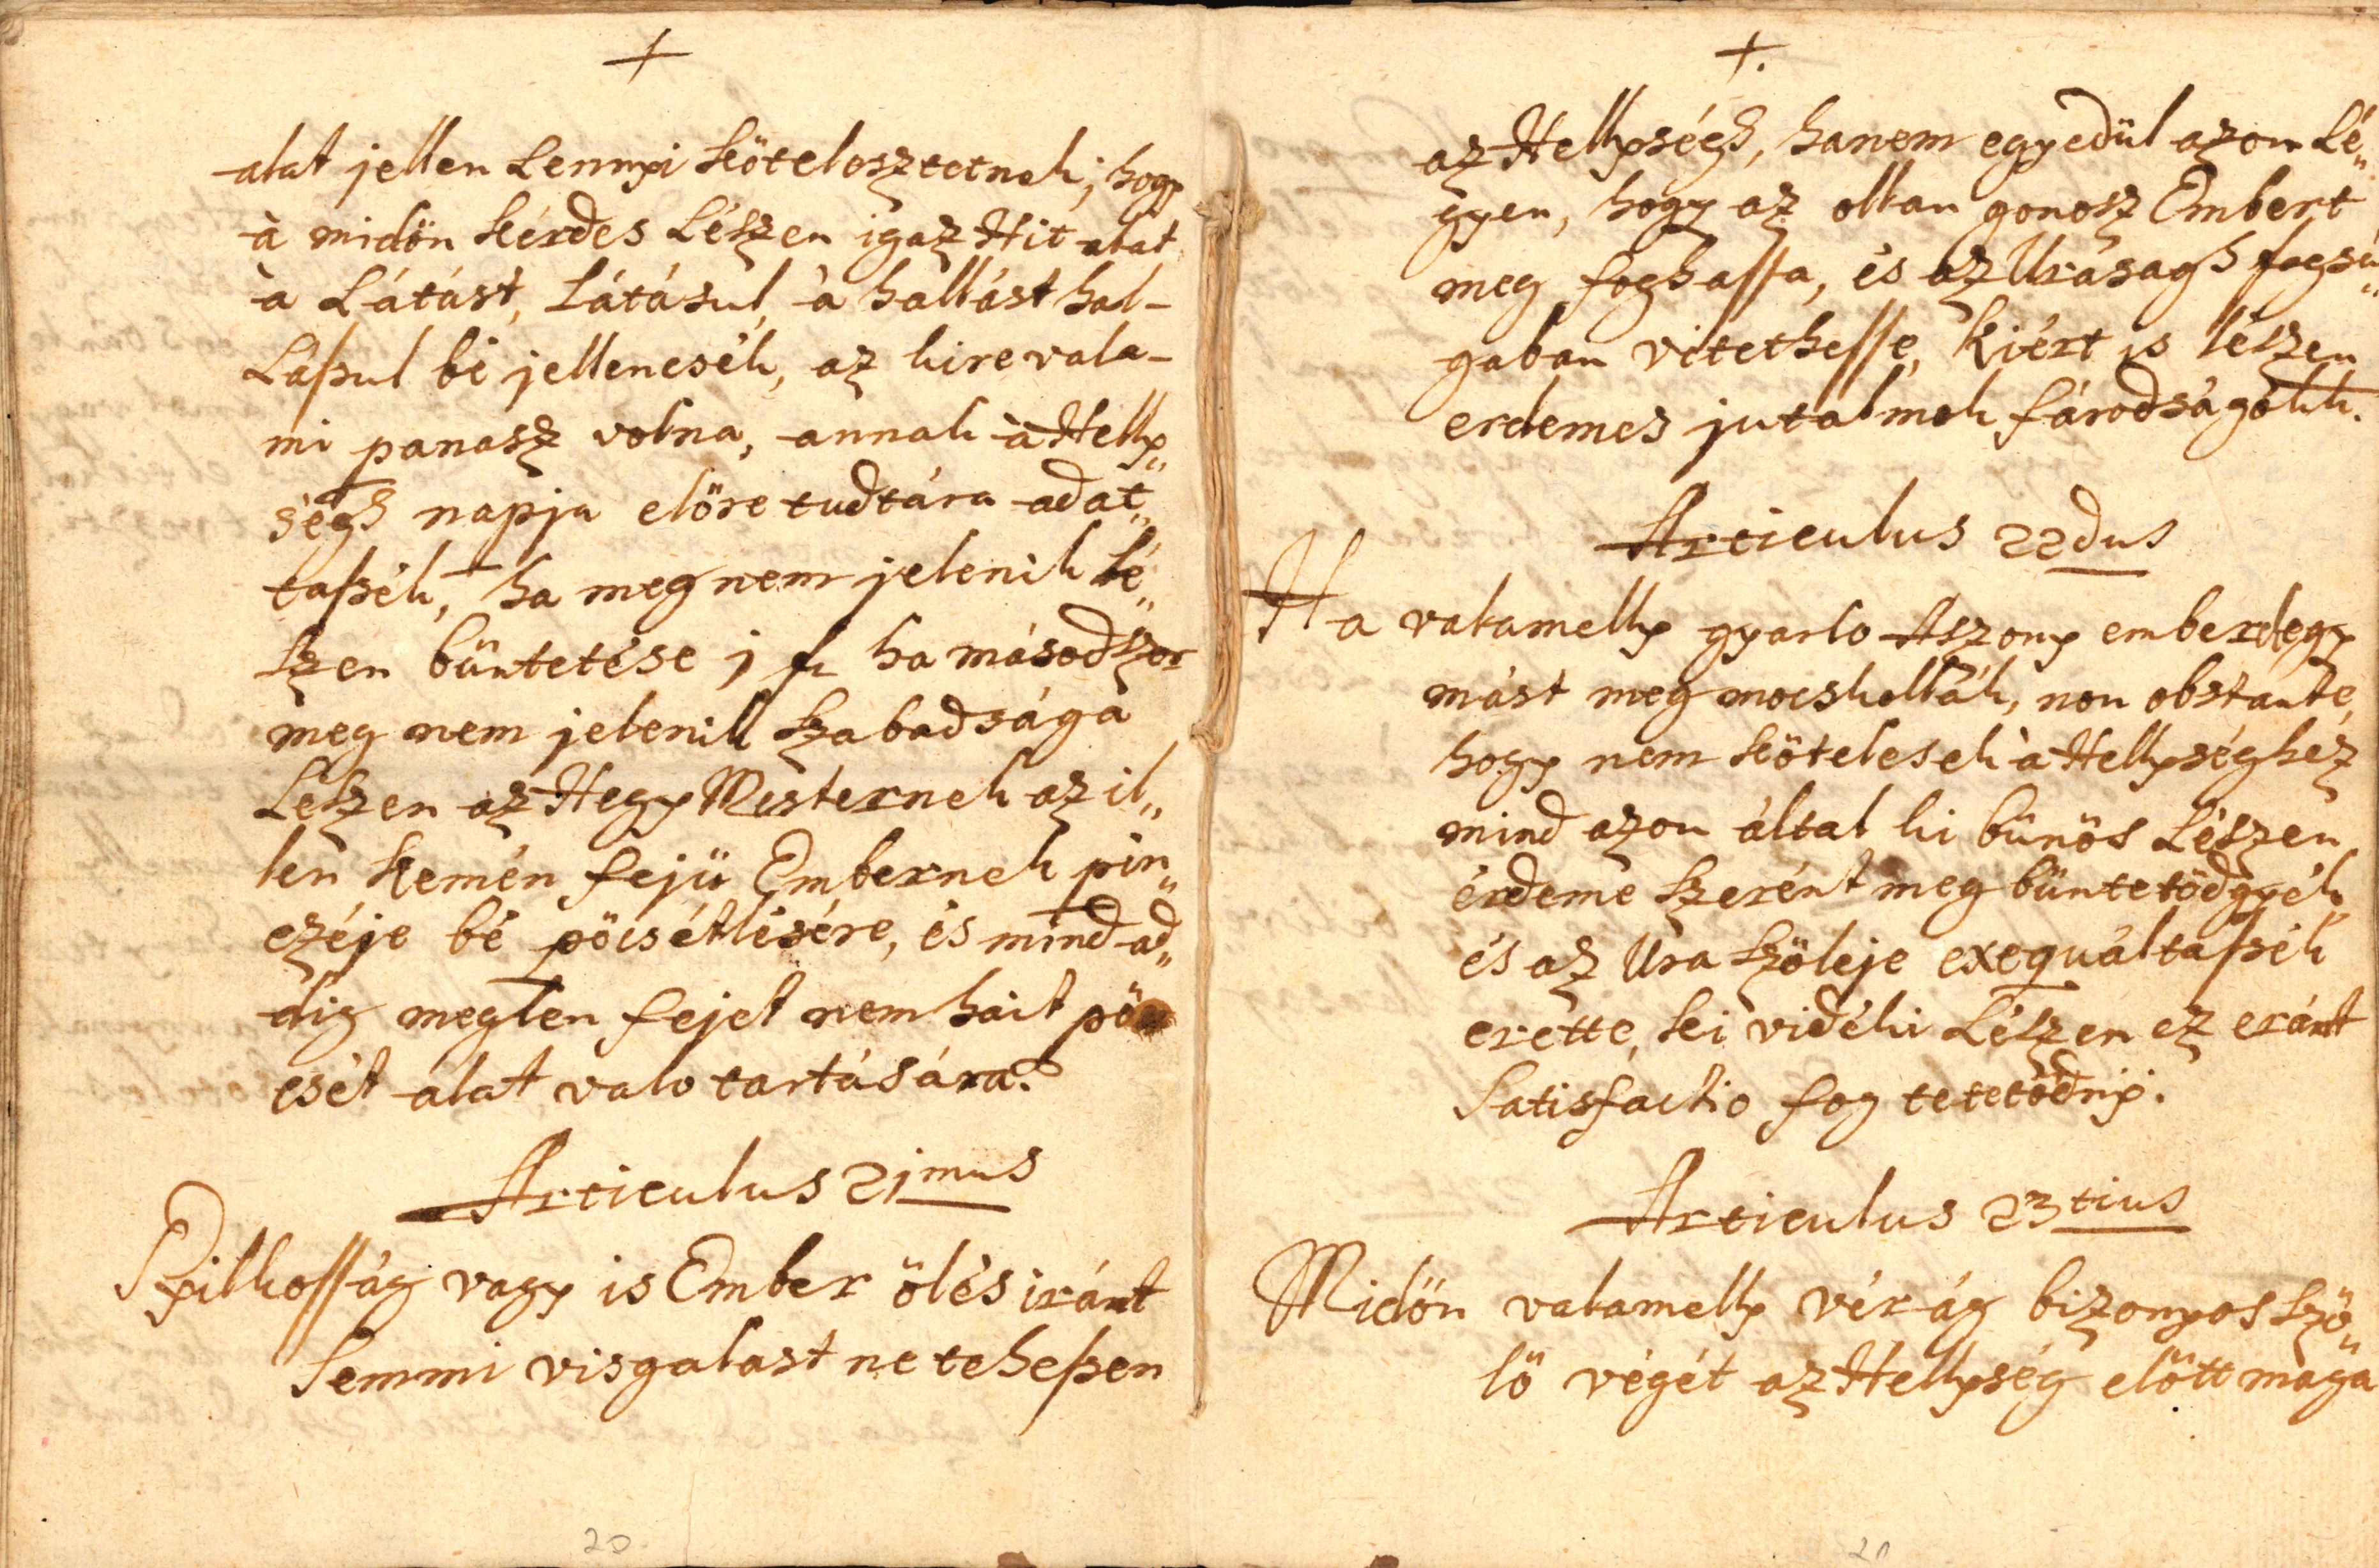 +
alat jellen Lennyi Kötelesztetnek, hogy
à midön Kérdes Lészen igaz Hit alat
à Látást, Látásul, à hallást hal-
Láßul bé jellencsék, az kire vala-
mi panasz volna, annak à Helly„
ségh napja elöre tudtára adat„
taßék, ha meg nem jelenik Lé„
szen büntetése j f. ha másodszor
meg nem jelenik Szabadsága
Leszen az Hegy Mesternek az il„
len Kemén fejü Embernek pin„
czéje bé pöcsétlésére, és mind ad„
dig meglen fejet nem hait pö
csét alat valo tartására.
Articulus 21mus
Gyilkosság vagy is Ember ölés iránt
Semmi visgalast ne teheßen
20
+.
az Hellységh, hanem egyedül azon Lé„
gyen, hogy az ollan gonosz Embert
meg foghassa, és az Uraságh fogsá„
gaban vitethesse, Kiért is lészen
erdemes jutalmok fárodságokk.
Articulus 22dus
Ha valamelly gyarlo Aszony emberek egy
mást meg mocskollák, non obstante,
hogy nem Kötelesek à Hellységhez
mind azon által ki bünös Lészen
érdeme szerént meg büntetödgyék
és az Ura Szöleje exequáltaßék
erette, Ki vidéki Lészen ez eránt
Satisfactio fog tetetödnyi.
Articulus 23tius
Midön valamelly vér ág bizonyos Szö„
lö végét az Hellység elött maga
21